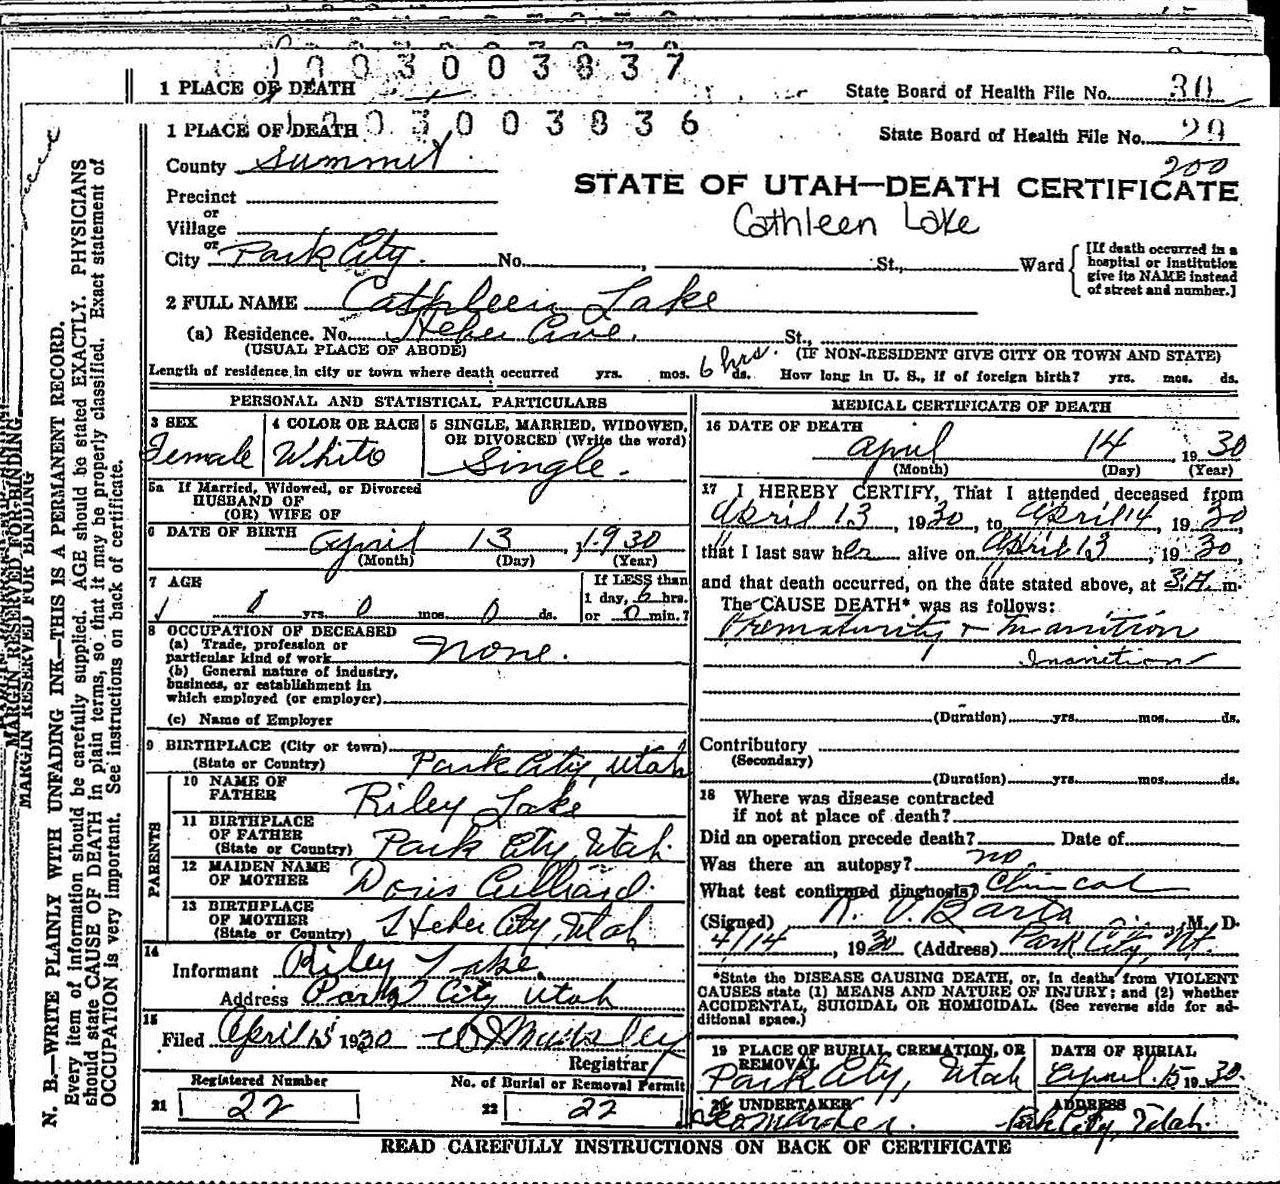 1003003837
1 PLACE OF DEATH
State Board of Health File No. 30
1003003836
1 PLACE OF DEATH
State Board of Health File No. 29
200
County Summit
STATE OF UTAH—DEATH CERTIFICATE
Precinct
or
Village
Cathleen Lake
or
City Park City. No. , St., Ward
[If death occurred in a
hospital or institution
give its NAME instead
of street and number.]
2 FULL NAME Cathleen Lake
(a) Residence. No. Heber Ave. St.,
(USUAL PLACE OF ABODE)
(IF NON-RESIDENT GIVE CITY OR TOWN AND STATE)
Length of residence in city or town where death occurred yrs. mos. 6 hrs. ds. How long in U. S., if of foreign birth? yrs. mos. ds.
PERSONAL AND STATISTICAL PARTICULARS
3 SEX
Female
4 COLOR OR RACE
White
5 SINGLE, MARRIED, WIDOWED,
OR DIVORCED (Write the word)
Single.
5a If Married, Widowed, or Divorced
HUSBAND OF
(OR) WIFE OF
6 DATE OF BIRTH April 13, 1930
(Month) (Day) (Year)
7 AGE
0 yrs. 0 mos. 0 ds.
If LESS than
1 day, 6 hrs.
or 0 min.?
8 OCCUPATION OF DECEASED
(a) Trade, profession or
particular kind of work None.
(b) General nature of industry,
business, or establishment in
which employed (or employer)
(c) Name of Employer
9 BIRTHPLACE (City or town)
(State or Country) Park City, Utah
PARENTS
10 NAME OF
FATHER Riley Lake
11 BIRTHPLACE
OF FATHER
(State or Country) Park City, Utah.
12 MAIDEN NAME
OF MOTHER Doris
13 BIRTHPLACE
OF MOTHER
(State or Country) Heber City, Utah
14
Informant Riley Lake.
Address Park City Utah
15
Filed April 15 1930
Registrar
Registered Number
21 22
No. of Burial or Removal Permit
22 22
MEDICAL CERTIFICATE OF DEATH
16 DATE OF DEATH
April 14, 1930
(Month) (Day) (Year)
17 I HEREBY CERTIFY, That I attended deceased from
April 13, 1930, to April 14, 1930
that I last saw her alive on April 13, 1930,
and that death occurred, on the date stated above, at 3 A. m.
The CAUSE DEATH* was as follows:
Prematurity & Inanition
Inanition
(Duration) yrs. mos. ds.
Contributory
(Secondary)
(Duration) yrs. mos. ds.
18 Where was disease contracted
if not at place of death?
Did an operation precede death? Date of
Was there an autopsy? no
What test confirmed diagnosis? Clinical
(Signed) , M. D.
4/14, 1930 (Address) Park City, Ut.
*State the DISEASE CAUSING DEATH, or, in deaths from VIOLENT
CAUSES state (1) MEANS AND NATURE OF INJURY; and (2) whether
ACCIDENTAL, SUICIDAL OR HOMICIDAL. (See reverse side for ad-
ditional space.)
19 PLACE OF BURIAL, CREMATION, OR
REMOVAL
Park City, Utah
DATE OF BURIAL
April 15 1930
20 UNDERTAKER
ADDRESS
Park City, Utah.
READ CAREFULLY INSTRUCTIONS ON BACK OF CERTIFICATE
MARGIN RESERVED FOR BINDING
MARGIN RESERVED FOR BINDING
N. B.—WRITE PLAINLY WITH UNFADING INK—THIS IS A PERMANENT RECORD.
Every item of information should be carefully supplied. AGE should be stated EXACTLY. PHYSICIANS
should state CAUSE OF DEATH in plain terms, so that it may be properly classified. Exact statement of
OCCUPATION is very important. See instructions on back of certificate.